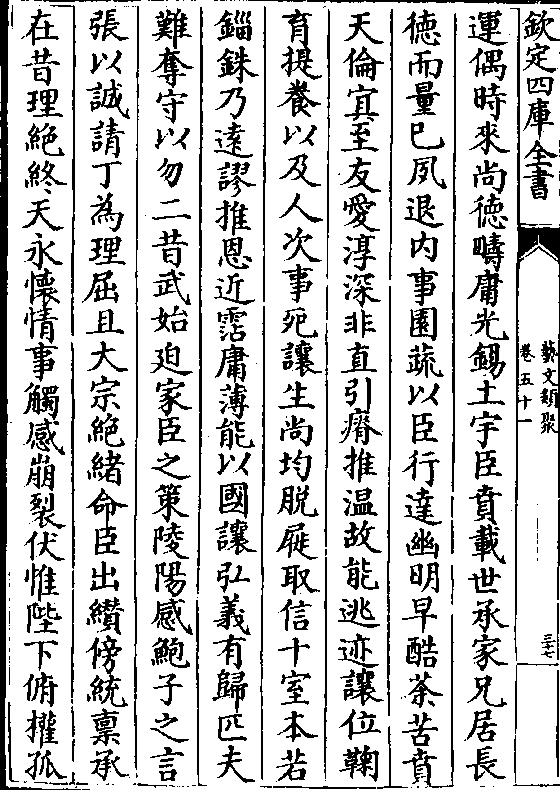 欽定四庫全書
藝文類聚
卷五十一
三七
運偶時來尚徳疇庸光錫土宇臣賁載世承家兄居長
徳而量已夙退内事園蔬以臣行達幽明早酷荼苦賁
天倫寘至友愛淳深非直引瘠推温故能逃迹讓位鞠
育提養以及人次事死讓生尚均脱屣取信十室本若
錙銖乃遠謬推恩近霑庸薄能以國讓弘義有歸匹夫
難奪守以勿二昔武始迫家臣之策陵陽感鮑子之言
張以誠請丁為理屈且大宗絶緒命臣出纉傍統禀承
在昔理絶終天永懐情事觸感崩裂伏惟陛下俯擢孤